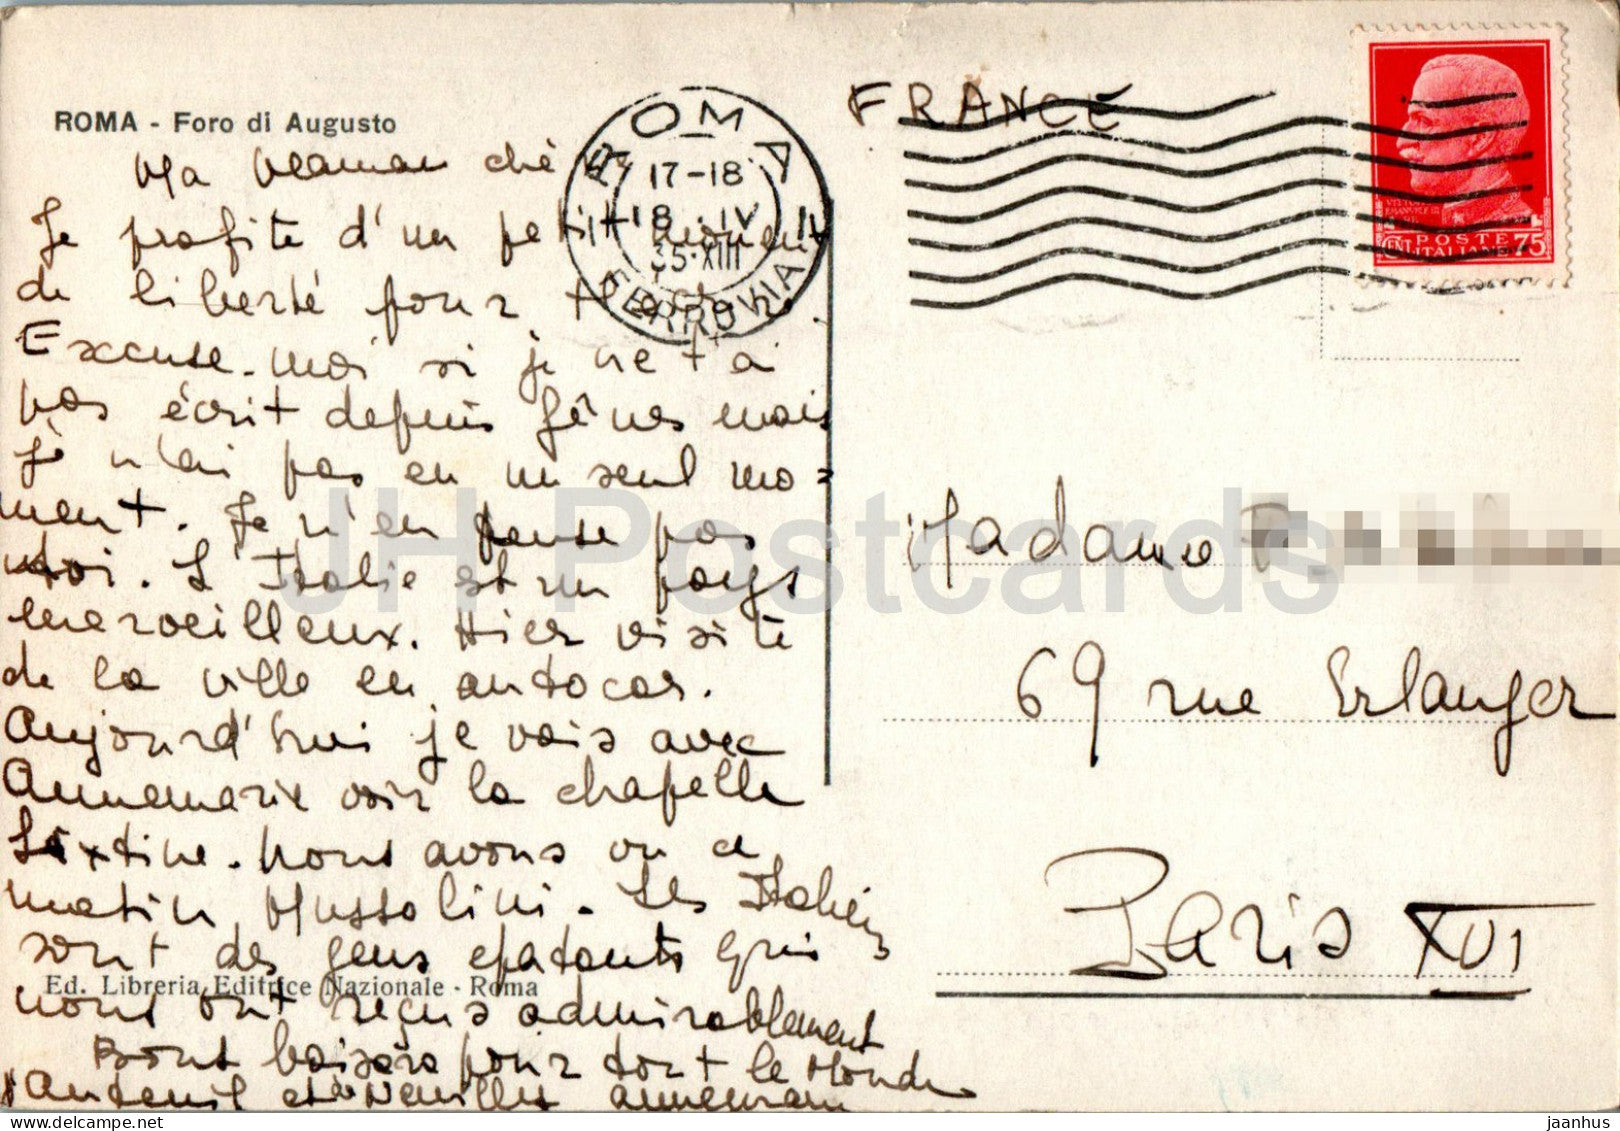 ROMA - Foro di Augusto
FRANCE
ROMA
17-18
18 . IV
35·XIII
FERROVIA
POSTE
ITALIANE 75
Ma Maman ché
Je profite d'un petit moment
de liberté pour
Excuse-moi si je ne t'ai
pas écrit depuis Gênes mais
Je n'ai pas eu un seul mo=
ment. Je n'en pense pas
L'Italie est un pays
merveilleux. Hier visite
de la ville en autocar.
Aujourd'hui je vais avec
Annemarie voir la chapelle
Sixtine. Nous avons vu ce
matin Mussolini. Les Italiens
sont des gens epatants qui
nous ont reçus admirablement
Bons baisers pour tout le Monde
d'Auteuil et de Neuilly
Ed. Libreria Editrice Nazionale - Roma
Madame
69 rue Erlanger
Paris XVI
JH Postcards
jaanhus © www.delcampe.net